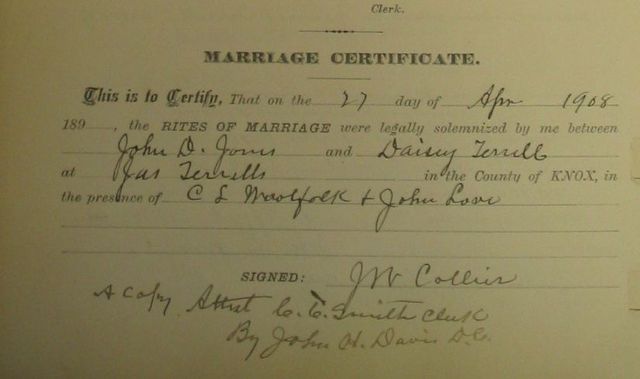 Clerk.
MARRIAGE CERTIFICATE.
This is to Certify, That on the 27 day of Apr 1908
189 , the RITES OF MARRIAGE were legally solemnized by me between
John D. Jones and Daisey Terrell
at Jas Terrells in the County of KNOX, in
the presence of C L Woolfolk & John Love
SIGNED: J W Collier
A Copy Attest C. C. Smith Clerk
By John H. Davis D.C.